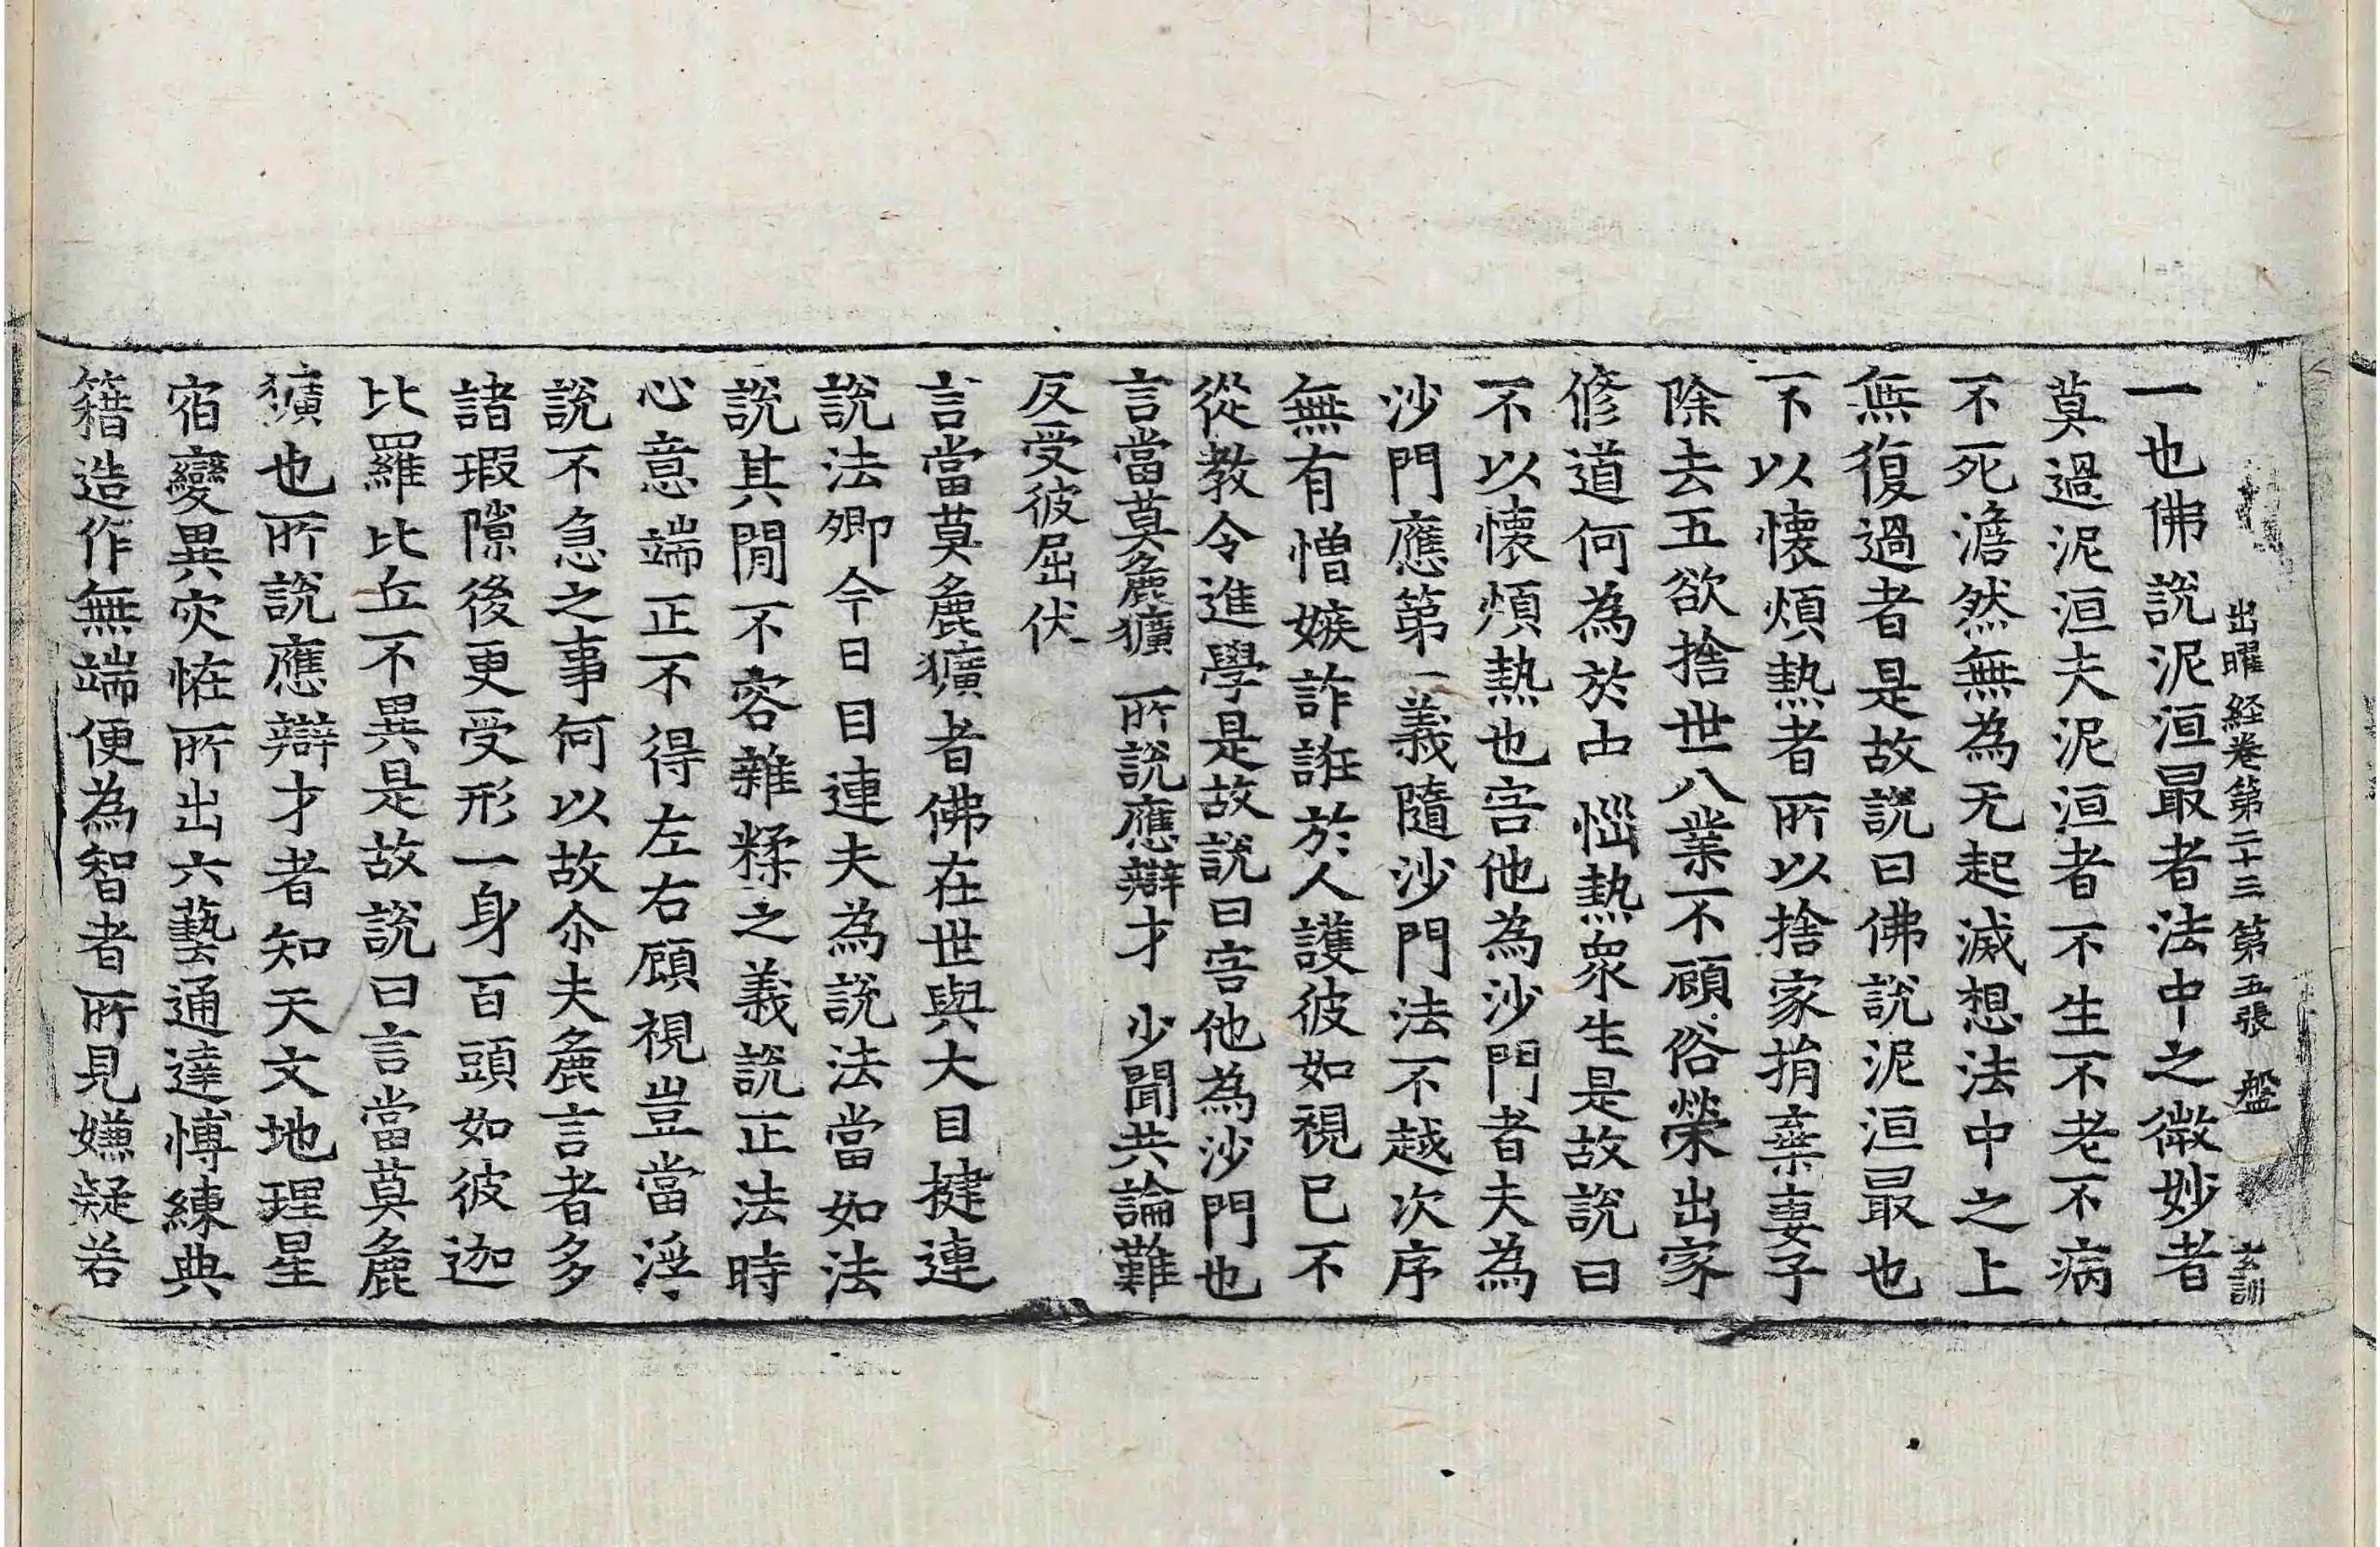 出曜経卷第二十三 第五張 盤 玄訓
一也佛說泥洹最者法中之微妙者
莫過泥洹夫泥洹者不生不老不病
不死澹然無為无起滅想法中之上
無復過者是故說曰佛說泥洹最也
不以懷煩熱者所以捨家捐棄妻子
除去五欲捨世八業不顧俗榮出家
修道何為於中惱熱衆生是故說曰
不以懷煩熱也害他為沙門者夫為
沙門應第一義隨沙門法不越次序
無有憎嫉詐誑於人護彼如視己不
從教令進學是故說曰害他為沙門也
言當莫麁獷 所說應辯才 少聞共論難
反受彼屈伏
言當莫麁獷者佛在世與大目揵連
說法卿今日目連夫為說法當如法
說其閒不容雜糅之義說正法時
心意端正不得左右顧視豈當浮
說不急之事何以故尒夫麁言者多
諸瑕隙後更受形一身百頭如彼迦
比羅比丘不異是故說曰言當莫麁
獷也所說應辯才者知天文地理星
宿變異灾恠所出六藝通達博練典
籍造作無端便為智者所見嫌疑若